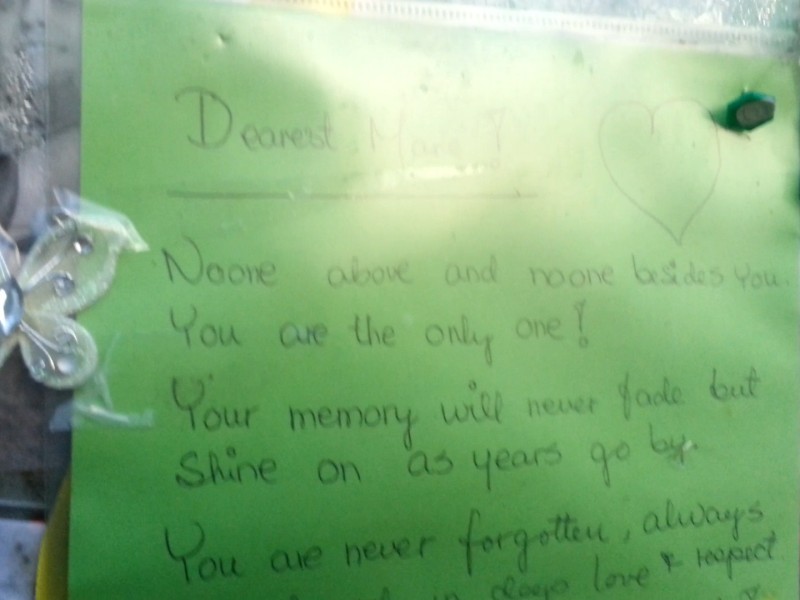 Dearest
Noone above and noone besides You.
You are the only one!
Your memory will never fade but
Shine on as years go by.
You are never forgotten, always
in deep love & respect